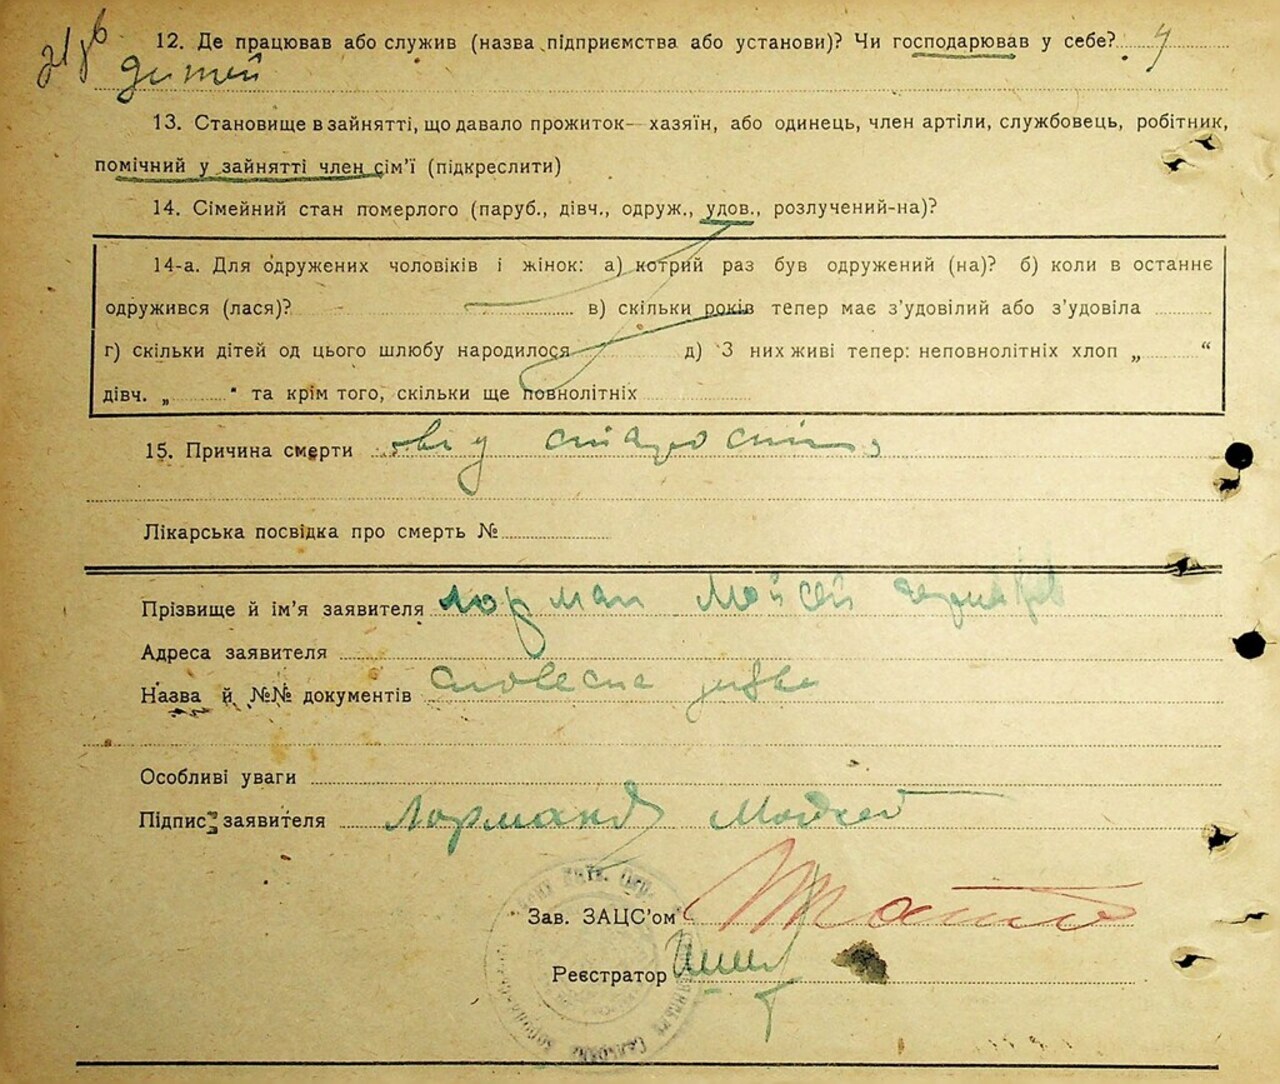 12. Де працював або служив (назва підприємства або установи)? Чи господарював у себе? у
дитей
13. Становище в зайнятті, що давало прожиток— хазяїн, або одинець, член артіли, службовець, робітник,
помічний у зайнятті член сім'ї (підкреслити)
14. Сімейний стан померлого (паруб., дівч., одруж., удов., розлучений-на)?
14-а. Для одружених чоловіків і жінок: а) котрий раз був одружений (на)? б) коли в останнє
одружився (лася)? в) скільки років тепер має з'удовілий або з'удовіла
г) скільки дітей од цього шлюбу народилося д) З них живі тепер: неповнолітніх хлоп „ “
дівч. „ “ та крім того, скільки ще повнолітніх
15. Причина смерти від старости
Лікарська посвідка про смерть №
Прізвище й ім'я заявителя Лорман Мойсей
Адреса заявителя
Назва й №№ документів словесна заява
Особливі уваги
Підпис заявителя Лорманд
Зав. ЗАЦС'ом
Реєстратор